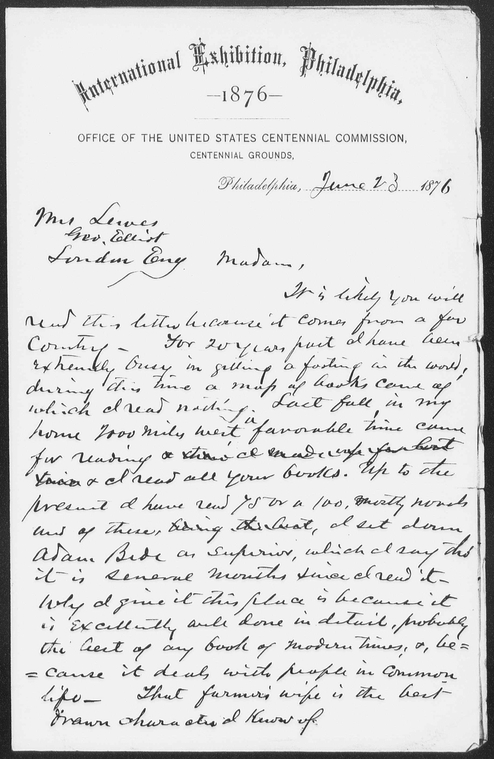 International Exhibition, Philadelphia,
—1876—
OFFICE OF THE UNITED STATES CENTENNIAL COMMISSION,
CENTENNIAL GROUNDS,
Philadelphia, June 23 1876
Mrs Lewes
Geo. Elliot
London Eng Madam,
It is likely you will
read this letter because it comes from a far
Country – For 20 years past I have been
extremely busy in getting a footing in the world,
during this time a mass of books came of
which I read nothing. Last fall, in my
home 2000 miles west a favorable time came
for reading &
& I read all your books. Up to the
present I have read 75 or a 100, mostly novels
and of these, I set down
Adam Bede as superior, which I say tho
it is several months since I read it –
Why I give it this place is because it
is excellently well done in detail, probably
the best of any book of modern times, &, be=
=cause it deals with people in common
life – That farmer's wife is the best
drawn character I know of